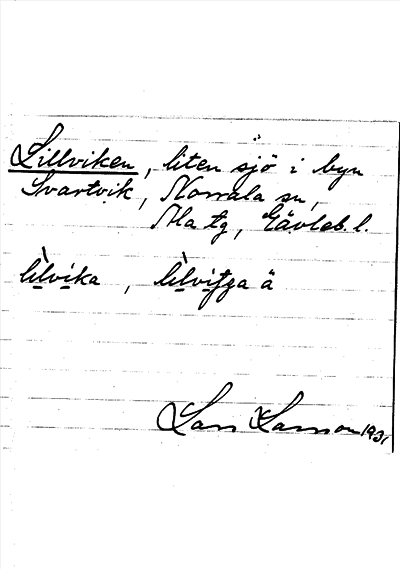 Lillviken, liten sjö i byn
Svartvik, Norrala sn,
Ala tg, Gävleb. l.
lìlvika, lìlvitga ä
Lars Larsson 1931